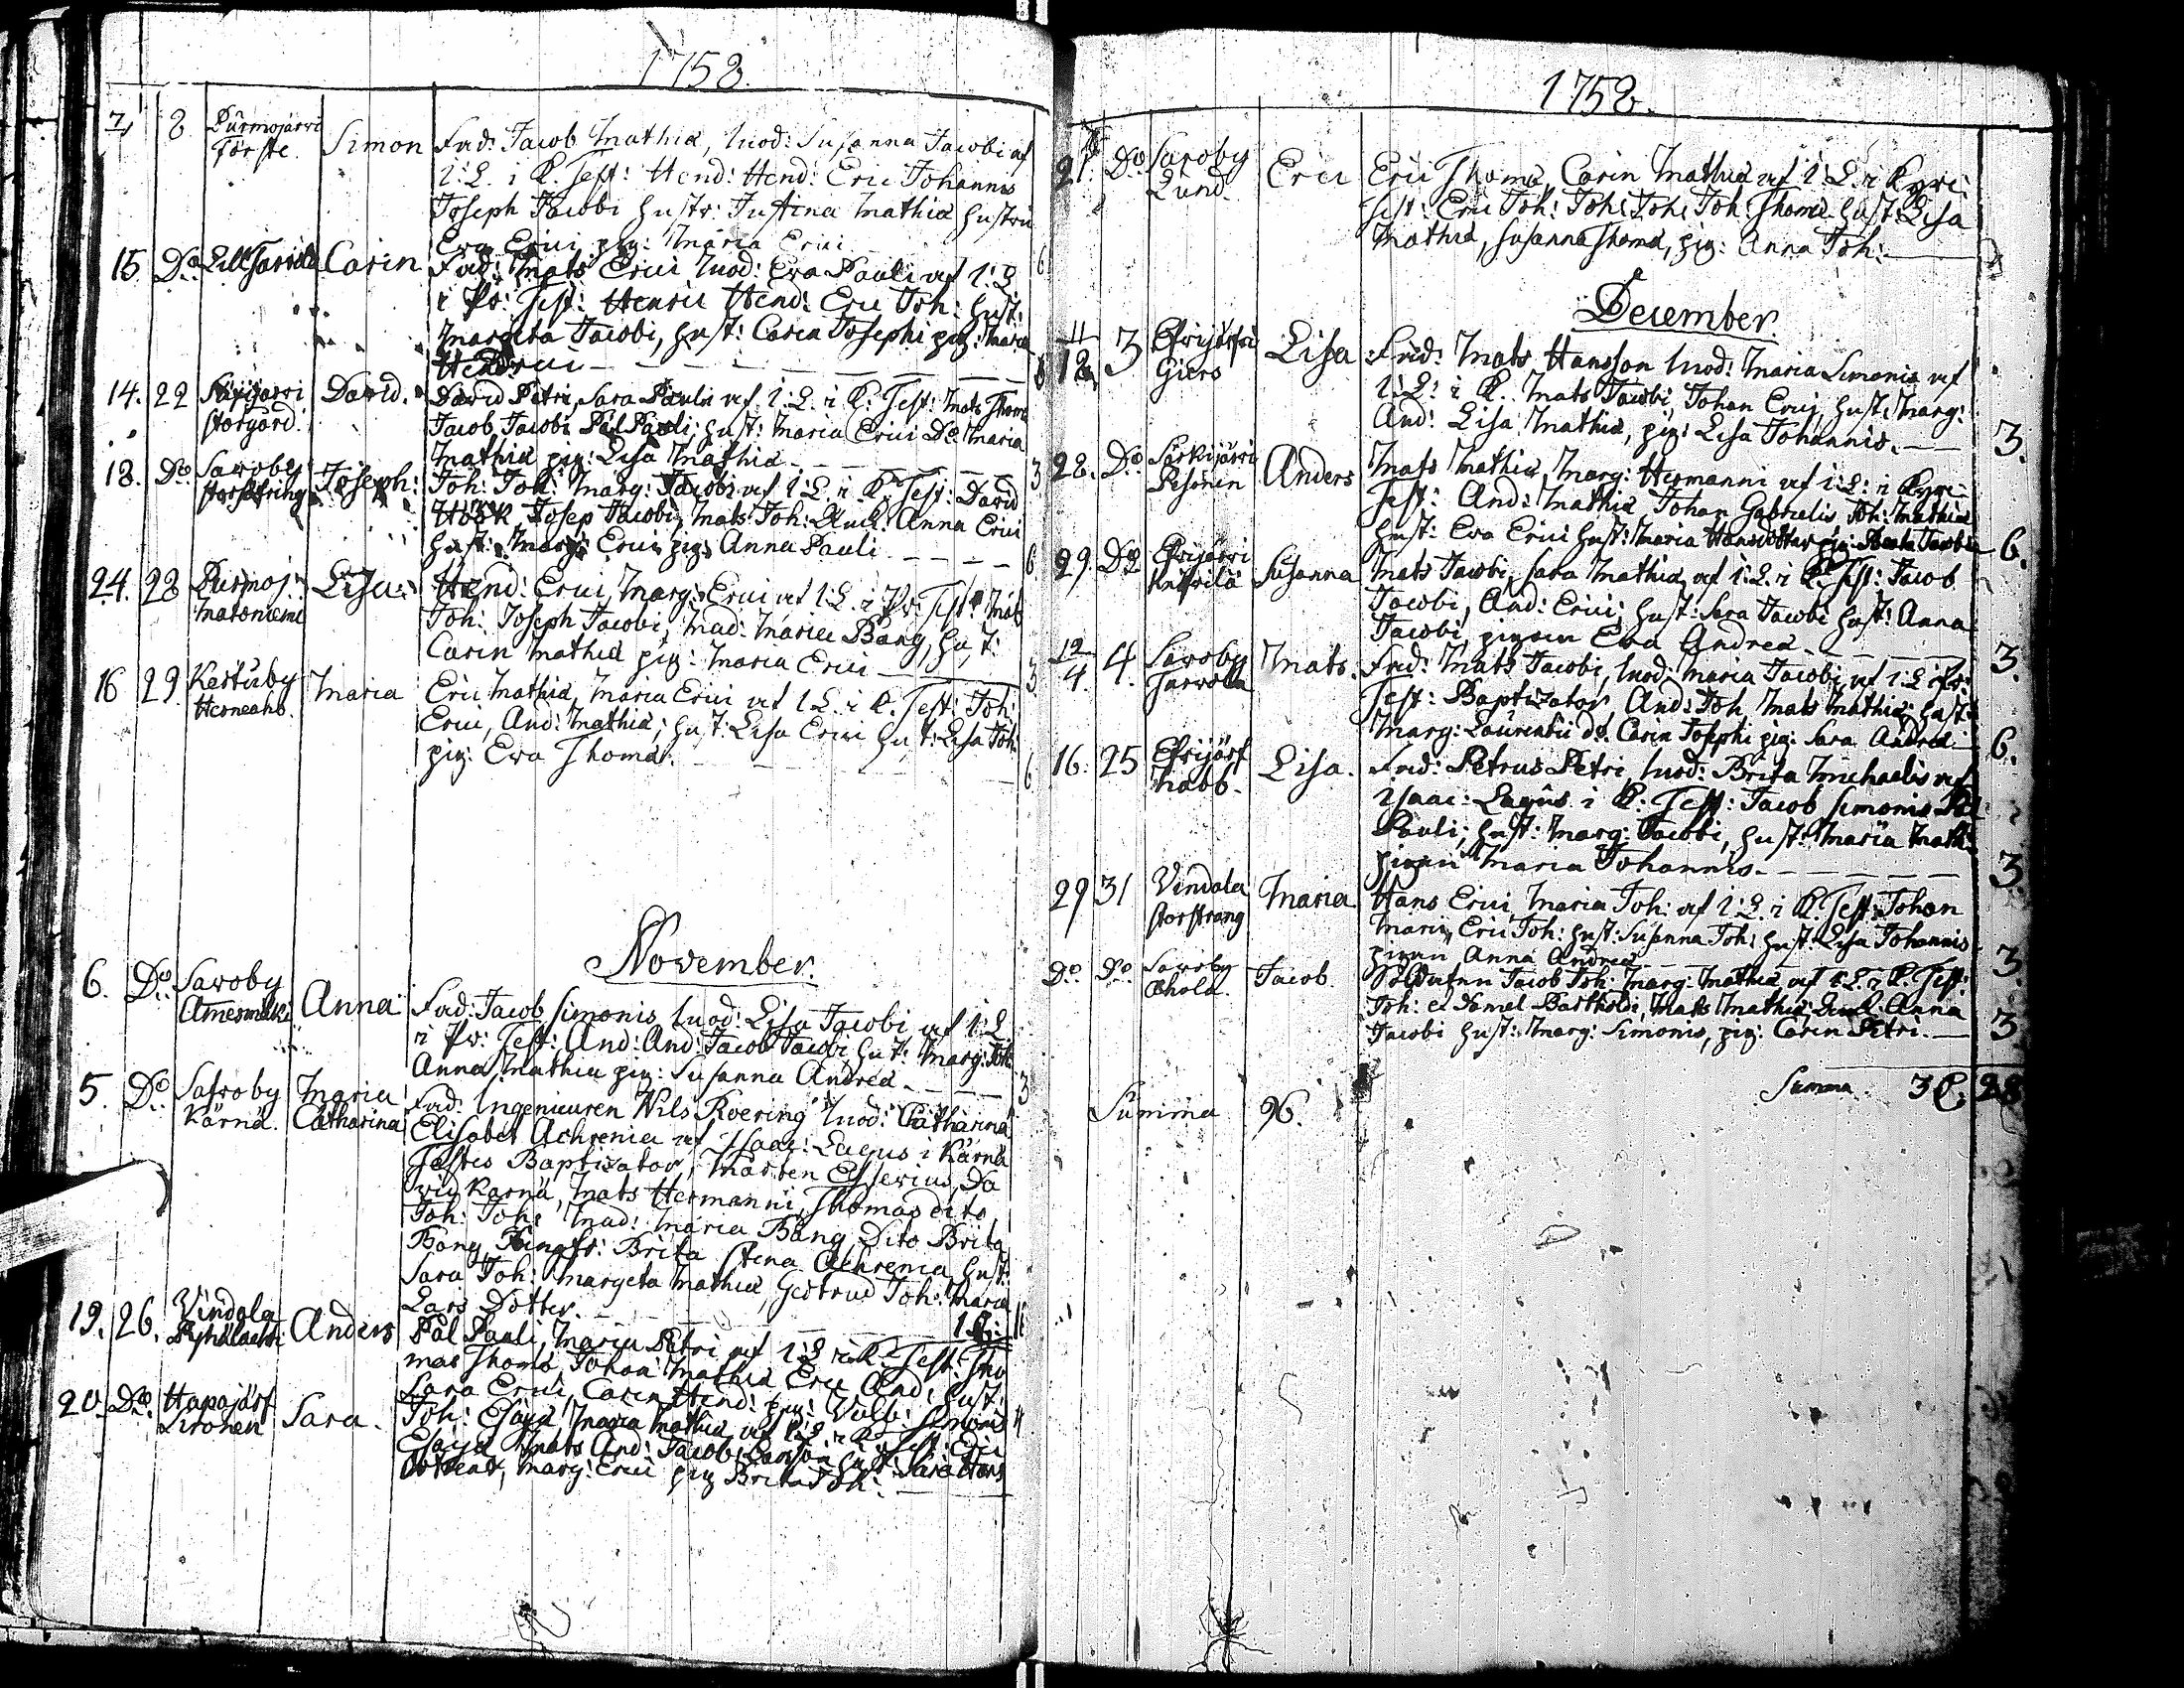 1758.
7 8 Purmojärvi Simon Fad: Jacob Mathiæ, Mod: Susanna Jacobi af
Förste. I: L. i K. Test: Hend: Hend: Eric Johannis
Joseph Jacobi hustr: Justina Mathiæ hustru
Eva Erici pig: Maria Erici
15 Do Carin Fad: Mats Erici Mod: Eva Pauli af I: L
i Pr: Test: Henric Hend: Eric Joh: hust: 6
Margeta Jacobi, hust: Carin Josephi pig: Maria
Hendrici 8
14. 22 David. David Petri, Sara Pauli af I: L. i K: Test: Mats Thomæ
Storgård. Jacob Jacobi Pål Pauli; hust: Maria Erici Do Maria
Mathiæ pig: Lisa Mathiæ 3
18. Do Savoby Joseph: Joh: Joh: Marg: Jacobi af I: L. i K. Test: David
Höök Josep Jacobi, Mats Joh: Anna Erici
hust: Marg: Erici pig: Anna Pauli 6
24. 28 Purmoj: Lisa: Hend: Erici, Marg: Erici af I: L. i Pr: Test: Mats
Matoniemi Joh: Joseph Jacobi, Mad: Maria Bang, hust:
Carin Mathiæ pig: Maria Erici 3
16 29. Kortuby Maria Eric Mathiæ, Maria Erici af I L. i K. Test: Joh:
Erici, And: Mathiæ; hust: Lisa Erici hust: Lisa Joh:
pig: Eva Thomæ. 6
November.
6. Do Savoby Anna Fad: Jacob Simonis Mod: Lisa Jacobi af I: L
i Pr: Test: And: And: Jacob Jacobi hust: Marg: Joh:
Anna Mathiæ pig: Susanna Andreæ. 3
5. Do Savoby Maria Fad: Ingenieuren Nils Roering Mod: Catharina
Kärnä. Catharina Elisabet Achrenia af Isaac: Lagus i Kärnä
Testes Baptizator, Mårten Esserius, Da
vid Kärnä, Mats Hermanni, Thomas dito
Joh: Joh: Mad: Maria Bang, Dito Brita
Bang, Jungfr: Brita Stina Achrenia hust:
Sara Joh: Margeta Mathiæ, Gertrud Joh: Maria
Lars Dotter.
19. 26. Vindala Anders Pål Pauli, Maria Petri af I: L i K: Test: Tho
mas Thomæ, Johan Mathiæ Eric And: hust:
Sara Erici, Carin Hend: pig: Valb: Simonis 4
20. Do Hapajärf Sara. Joh: Esaiæ Maria Mathiæ af I: L: i K. Test: Eric
Sironen Esaiæ Mats And: Jacob Larsson hust: Sara Hans
dotter, Marg: Erici pig Brita Joh:
1758.
21. Do Savoby Eric Eric Thomæ Carin Mathiæ af I: L. i Kyrc:
Lund. Test: Eric Joh: Joh: Joh: Joh: Thomæ hust: Lisa
Mathiæ, Susanna Thomæ, pig: Anna Joh:
December
11
18 3 Lisa Fad: Mats Hansson Mod: Maria Simonis af
Giers I: L: i K. Mats Jacobi, Johan Erici, hust: Marg:
And: Lisa Mathiæ, pig: Lisa Johannis. 3.
28. Do Särkijärvi Anders Mats Mathiæ Marg: Hermanni af I: L: i Kyrc:
Pesonen Test: And: Mathiæ Johan Gabrielis, Joh: Mathiæ
hust: Eva Erici hust: Maria Hansdotter pig: Beata Jacobi 6.
29. Do Susanna Mats Jacobi, Sara Mathiæ, af I: L. i K: Test: Jacob
Jacobi, And: Erici; hust: Sara Jacobi hust: Anna
Jacobi, pigan Eva Andreæ. 3.
12
4. 4. Savoby Mats. Fad: Mats Jacobi, Mod: Maria Jacobi af I: L i Pr:
Test: Baptizator, And: Joh Mats Mathiæ; hust:
Marg: Laurentii do. Carin Josephi pig: Sara Andreæ 6.
16. 25 Lisa. Fad: Petrus Petri, Mod: Brita Michaelis af
Nabb. Isaac: Lagus i K: Test: Jacob Simonis Pål
Pauli; hust: Marg: Jacobi, hust: Maria Math:
pigan Maria Johannis. 3.
29 31 Vindala Maria Hans Erici, Maria Joh: af I: L. i K. Test: Johan
Storstrang Eric Joh: hust: Susanna Joh: hust: Lisa Johannis
pigan Anna Andreæ 3.
Do Do Savoby Jacob. Soldaten Jacob Joh: Marg: Mathiæ af I: L. i K. Test:
Joh: et Daniel Bartholdi, Mats Mathiæ Anna
Jacobi hust: Marg: Simonis, pig: Carin Petri. 3
Summa 3 28
Summa 96.